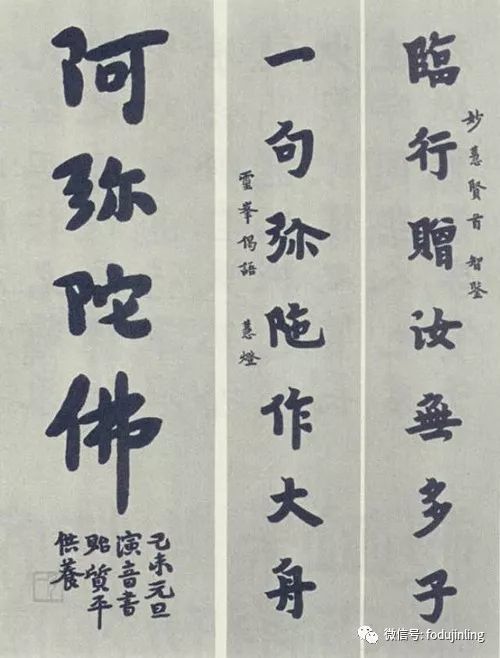 臨行贈汝無多子
妙慧賢首智鋻
一句弥陁作大舟
靈峯偈語 慧燈
阿弥陀佛
己未元旦
演音書
貽質平
供養
微信号: fodujinling